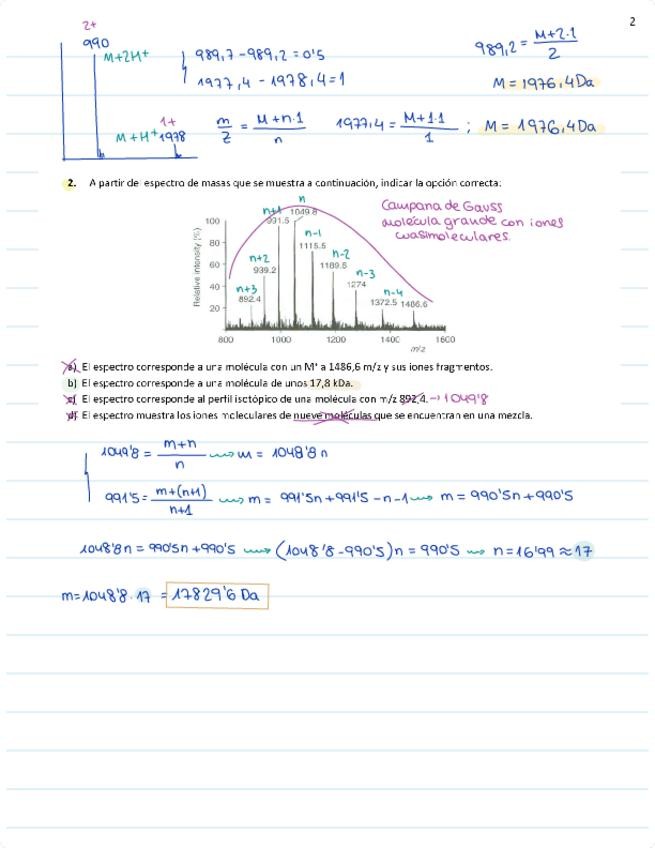 2
2+
990
M+2H⁺
989,7-989,2 = 0'5
1977,4 - 1978,4 = 1
989,2 = M+2·1 / 2
M = 1976,4 Da
1+
M+H⁺ 1978
m/z = M+n·1 / n
1977,4 = M+1·1 / 1 ; M = 1976,4 Da
2. A partir del espectro de masas que se muestra a continuación, indicar la opción correcta:
Campana de Gauss
molécula grande con iones
cuasimoleculares.
Relative intensity (%)
100
80
60
40
20
n+3
892.4
n+2
939.2
n+1
991.5
n
1049.8
n-1
1115.5
n-2
1189.5
n-3
1274
n-4
1372.5
1486.6
800 1000 1200 1400 1600
m/z
a) El espectro corresponde a una molécula con un M⁺ a 1486,6 m/z y sus iones fragmentos.
b) El espectro corresponde a una molécula de unos 17,8 kDa.
c) El espectro corresponde al perfil isotópico de una molécula con m/z 892,4. → 1049'8
d) El espectro muestra los iones moleculares de nueve moléculas que se encuentran en una mezcla.
1049'8 = m+n / n ⟿ m = 1048'8 n
991'5 = m+(n+1) / n+1 ⟿ m = 991'5n + 991'5 - n - 1 ⟿ m = 990'5n + 990'5
1048'8n = 990'5n + 990'5 ⟿ (1048'8 - 990'5)n = 990'5 ⟿ n = 16'99 ≈ 17
m = 1048'8 · 17 = 17829'6 Da